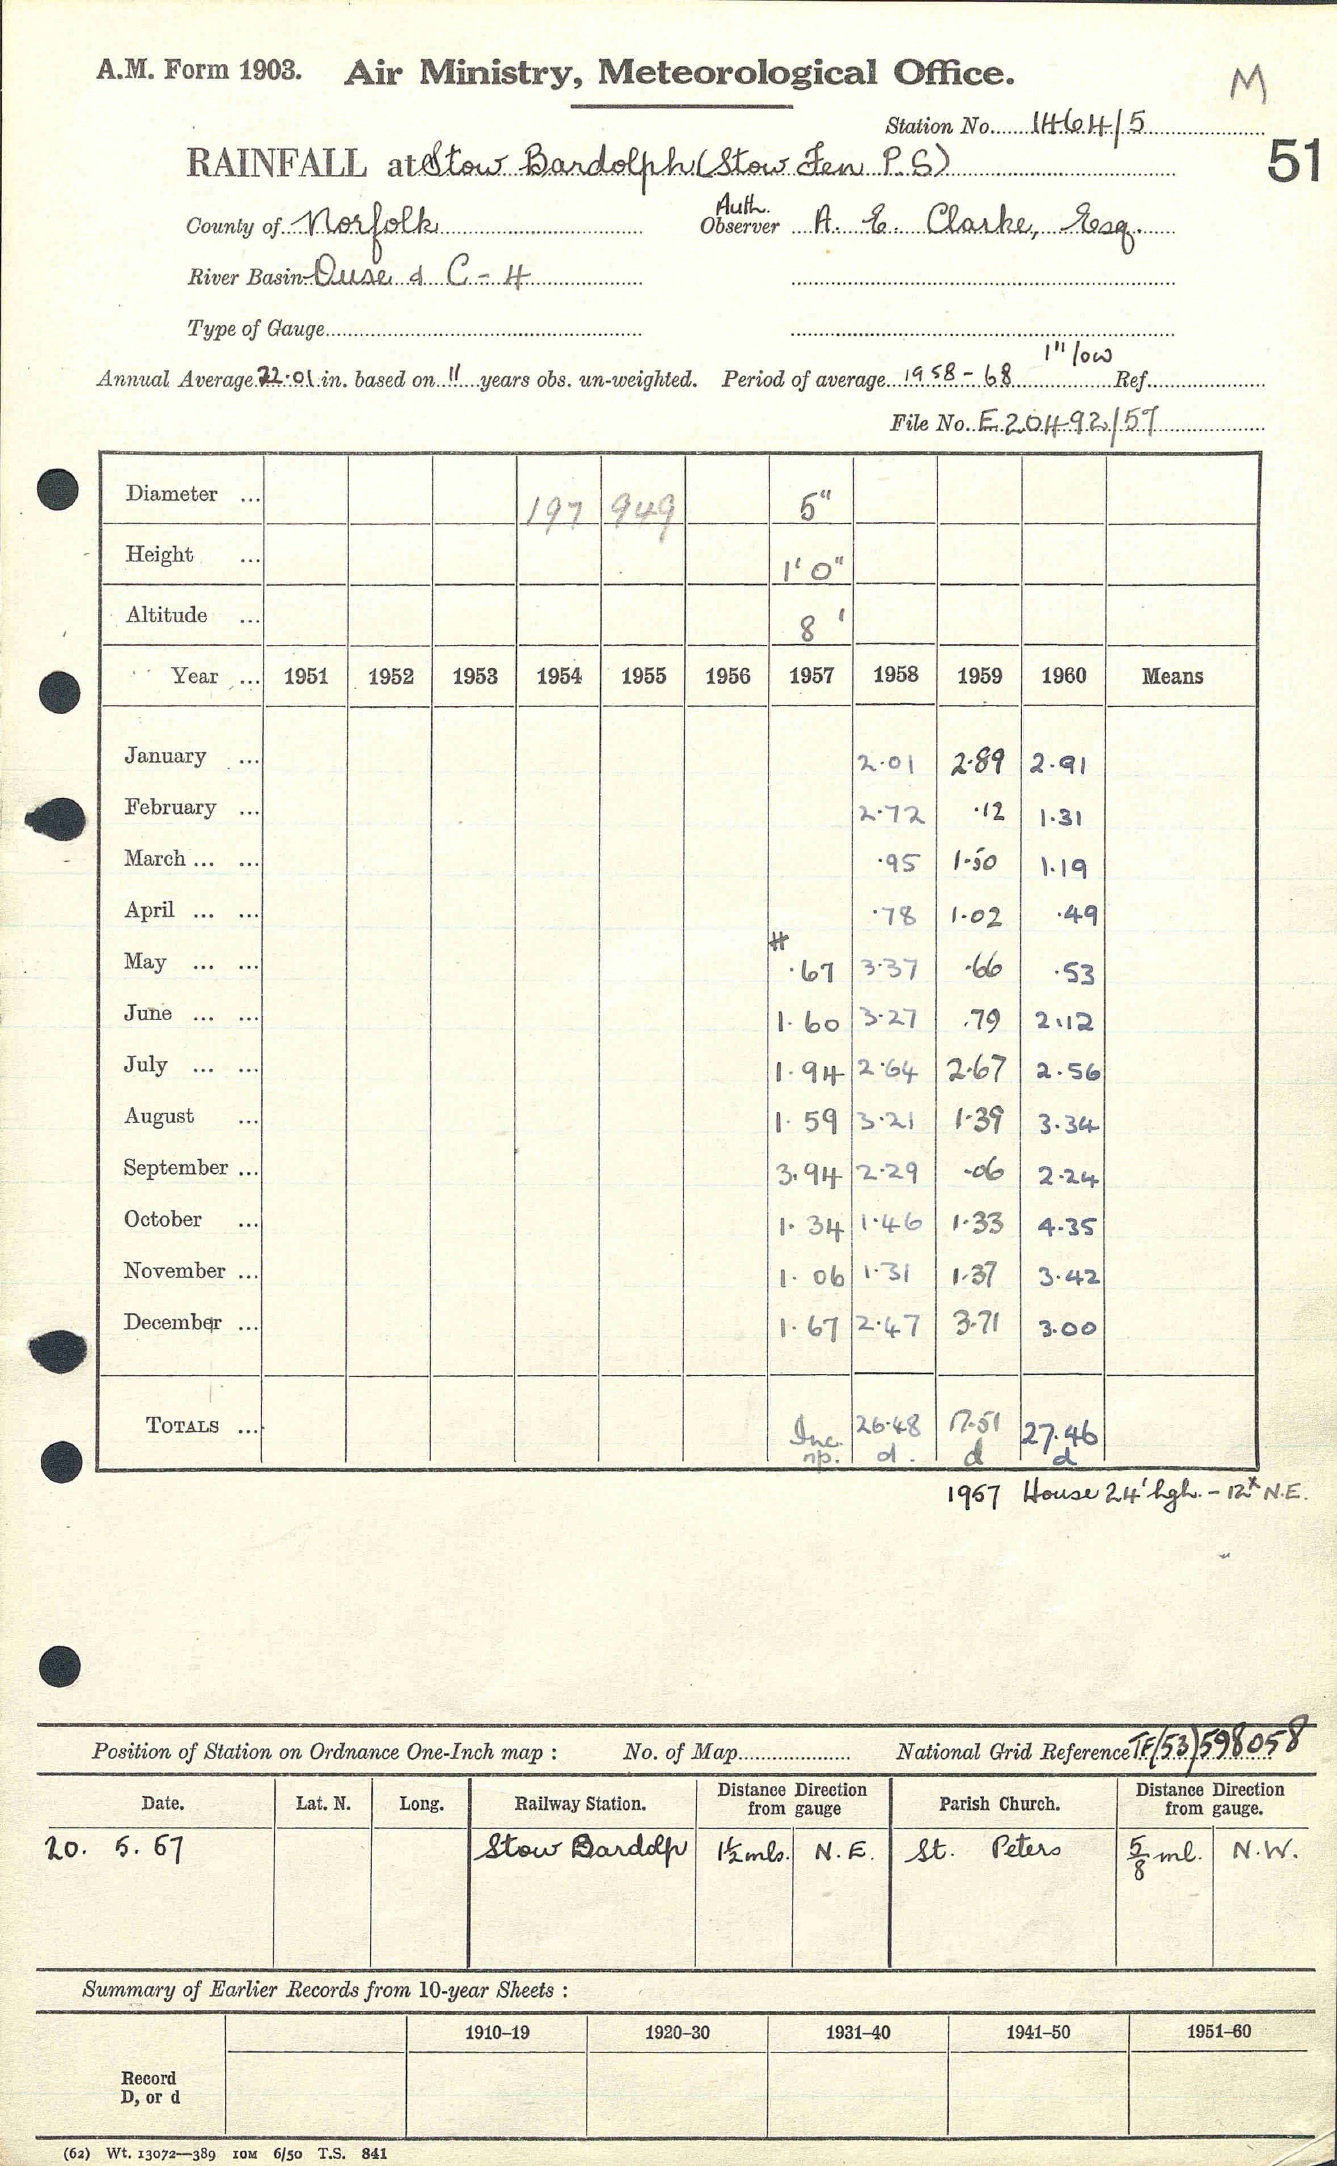 A.M. Form 1903. Air Ministry, Meteorological Office.
M
Station No. 1464/5
RAINFALL at Stow Bardolph (Stow Fen P.S)
51
County of Norfolk Auth. Observer A. E. Clarke, Esq.
River Basin Ouse & C - 4
Type of Gauge
1" low
Annual Average 22.01 in. based on 11 years obs. un-weighted. Period of average 1958 - 68 Ref.
File No. E20492/57
Diameter ... 197 949 5"
Height ... 1' 0"
Altitude ... 8'
Year ... 1951 1952 1953 1954 1955 1956 1957 1958 1959 1960 Means
January ... 2.01 2.89 2.91
February ... 2.72 .12 1.31
March ... ... .95 1.50 1.19
April ... ... .78 1.02 .49
May ... ... # .67 3.37 .66 .53
June ... ... 1.60 3.27 .79 2.12
July ... ... 1.94 2.64 2.67 2.56
August ... 1.59 3.21 1.39 3.34
September ... 3.94 2.29 .06 2.24
October ... 1.34 1.46 1.33 4.35
November ... 1.06 1.31 1.37 3.42
December ... 1.67 2.47 3.71 3.00
TOTALS ... Inc. 26.48 17.51 27.46
np. d. d d
1957 House 24' hgh. - 12x N.E.
Position of Station on Ordnance One-Inch map : No. of Map National Grid Reference TF(53)598058
Date. Lat. N. Long. Railway Station. Distance Direction from gauge Parish Church. Distance Direction from gauge.
20. 5. 57 Stow Bardolp 1½ mls. N.E. St. Peters 5/8 ml. N.W.
Summary of Earlier Records from 10-year Sheets :
1910–19 1920–30 1931–40 1941–50 1951–60
Record
D, or d
(62) Wt. 13072—389 10M 6/50 T.S. 841